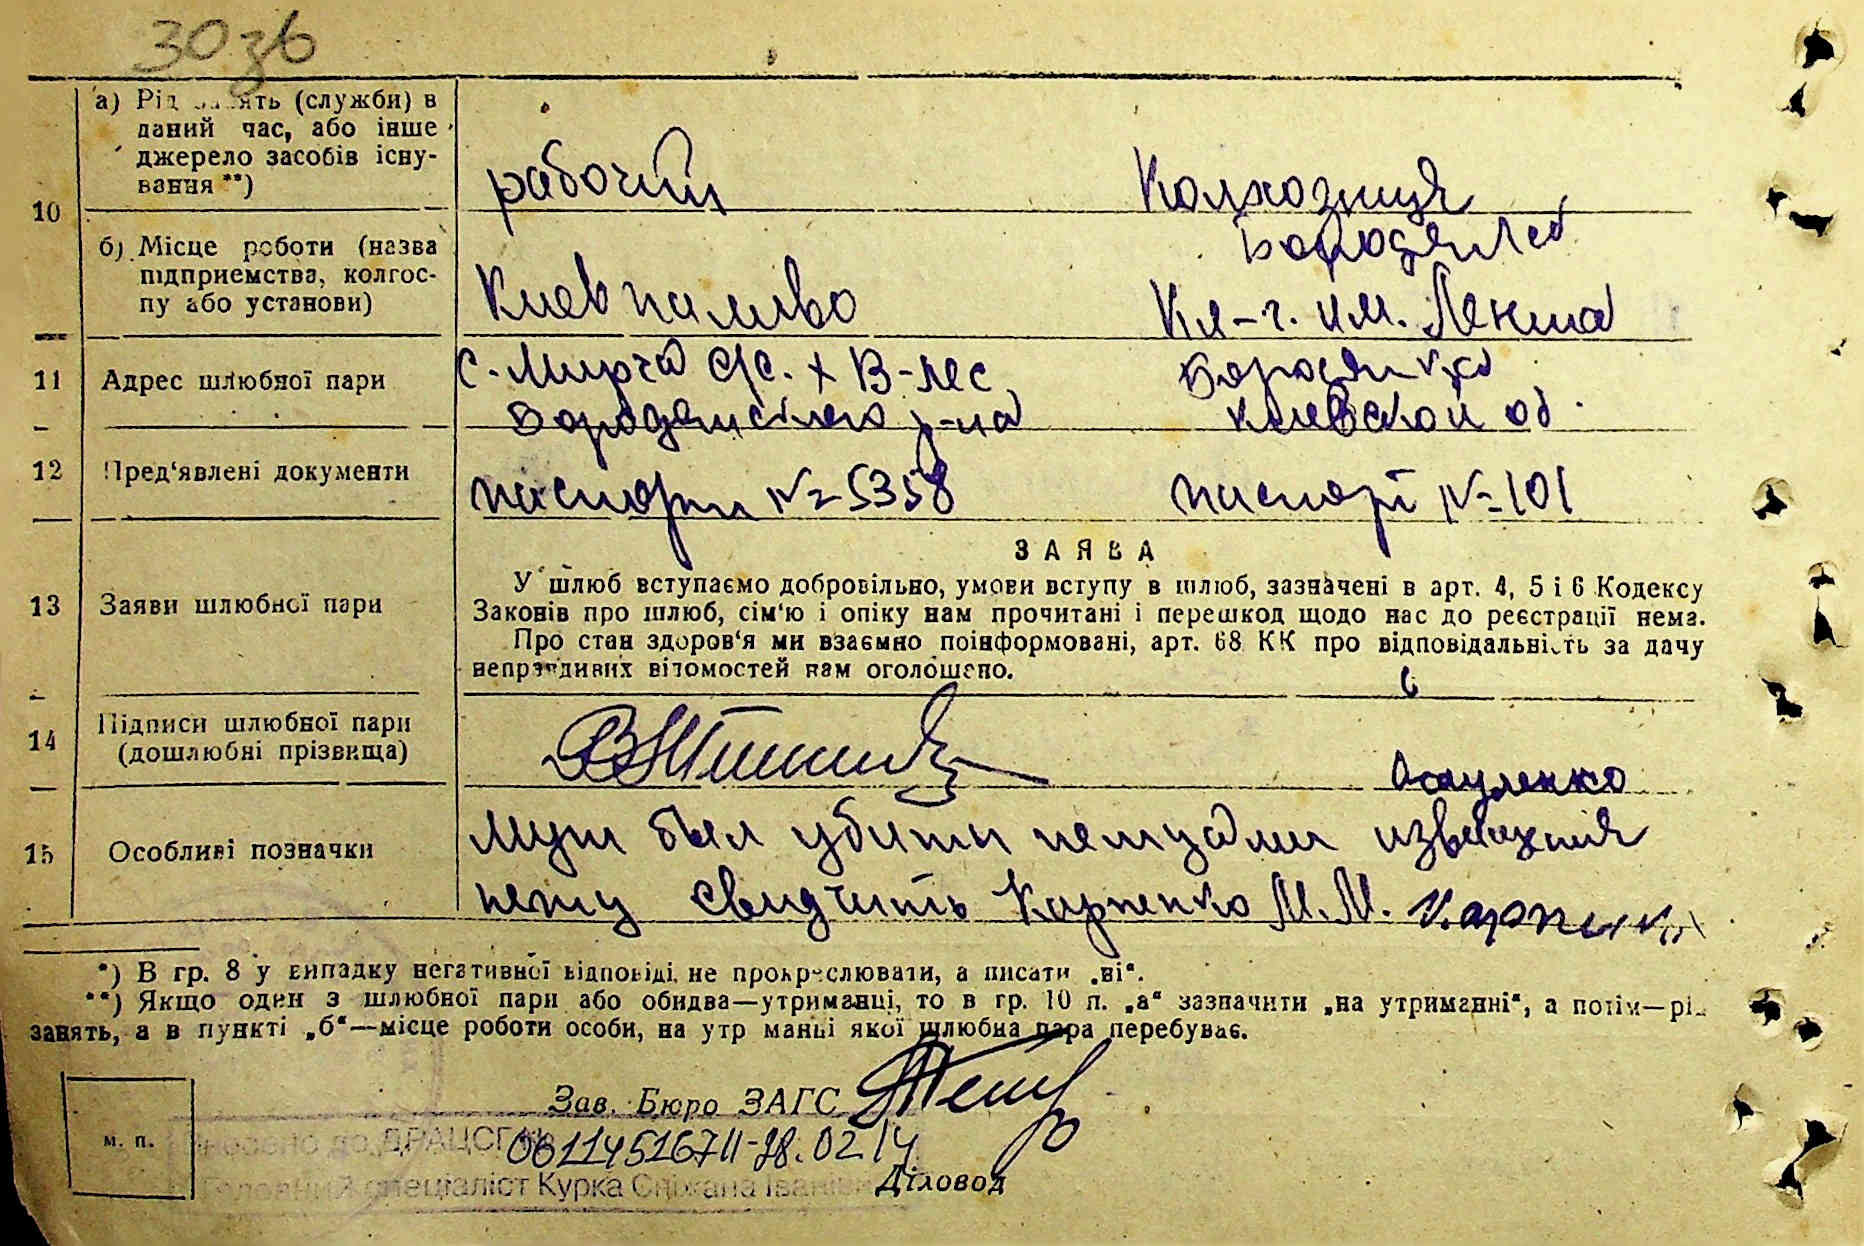 30 зв
а) Рід занять (служби) в
даний час, або інше
джерело засобів існу-
вання **)
рабочий
Колхозниця
10
б) Місце роботи (назва
підприемства, колгос-
пу або установи)
Киев паливо
Кл-г. им. Ленина
11
Адрес шлюбної пари
с. Мирча с/с.
р-на
Киевской об.
12
Пред'явлені документи
паспорт № 5358
паспорт № 101
13
Заяви шлюбної пари
ЗАЯВА
У шлюб вступаємо добровільно, умови вступу в шлюб, зазначені в арт. 4, 5 і 6 Кодексу
Законів про шлюб, сім'ю і опіку нам прочитані і перешкод щодо нас до реєстрації нема.
Про стан здоров'я ми взаємно поінформовані, арт. 68 КК про відповідальність за дачу
неправдивих відомостей нам оголошено.
14
Підписи шлюбної пари
(дошлюбні прізвища)
15
Особливі позначки
Муж был убит немцами
свидчить Карпенко М.М.
*) В гр. 8 у випадку негативної відповіді, не прокреслювати, а писати „ні“.
**) Якщо один з шлюбної пари або обидва—утриманці, то в гр. 10 п. „а“ зазначити „на утриманні“, а потім—рід
занять, а в пункті „б“—місце роботи особи, на утр манні якої шлюбна пара перебуває.
Зав. Бюро ЗАГС
м. п.
внесено до ДРАЦСГ
00114516711-28.02.14
Головний спеціаліст Курка Сніжана Іванівна
Діловод